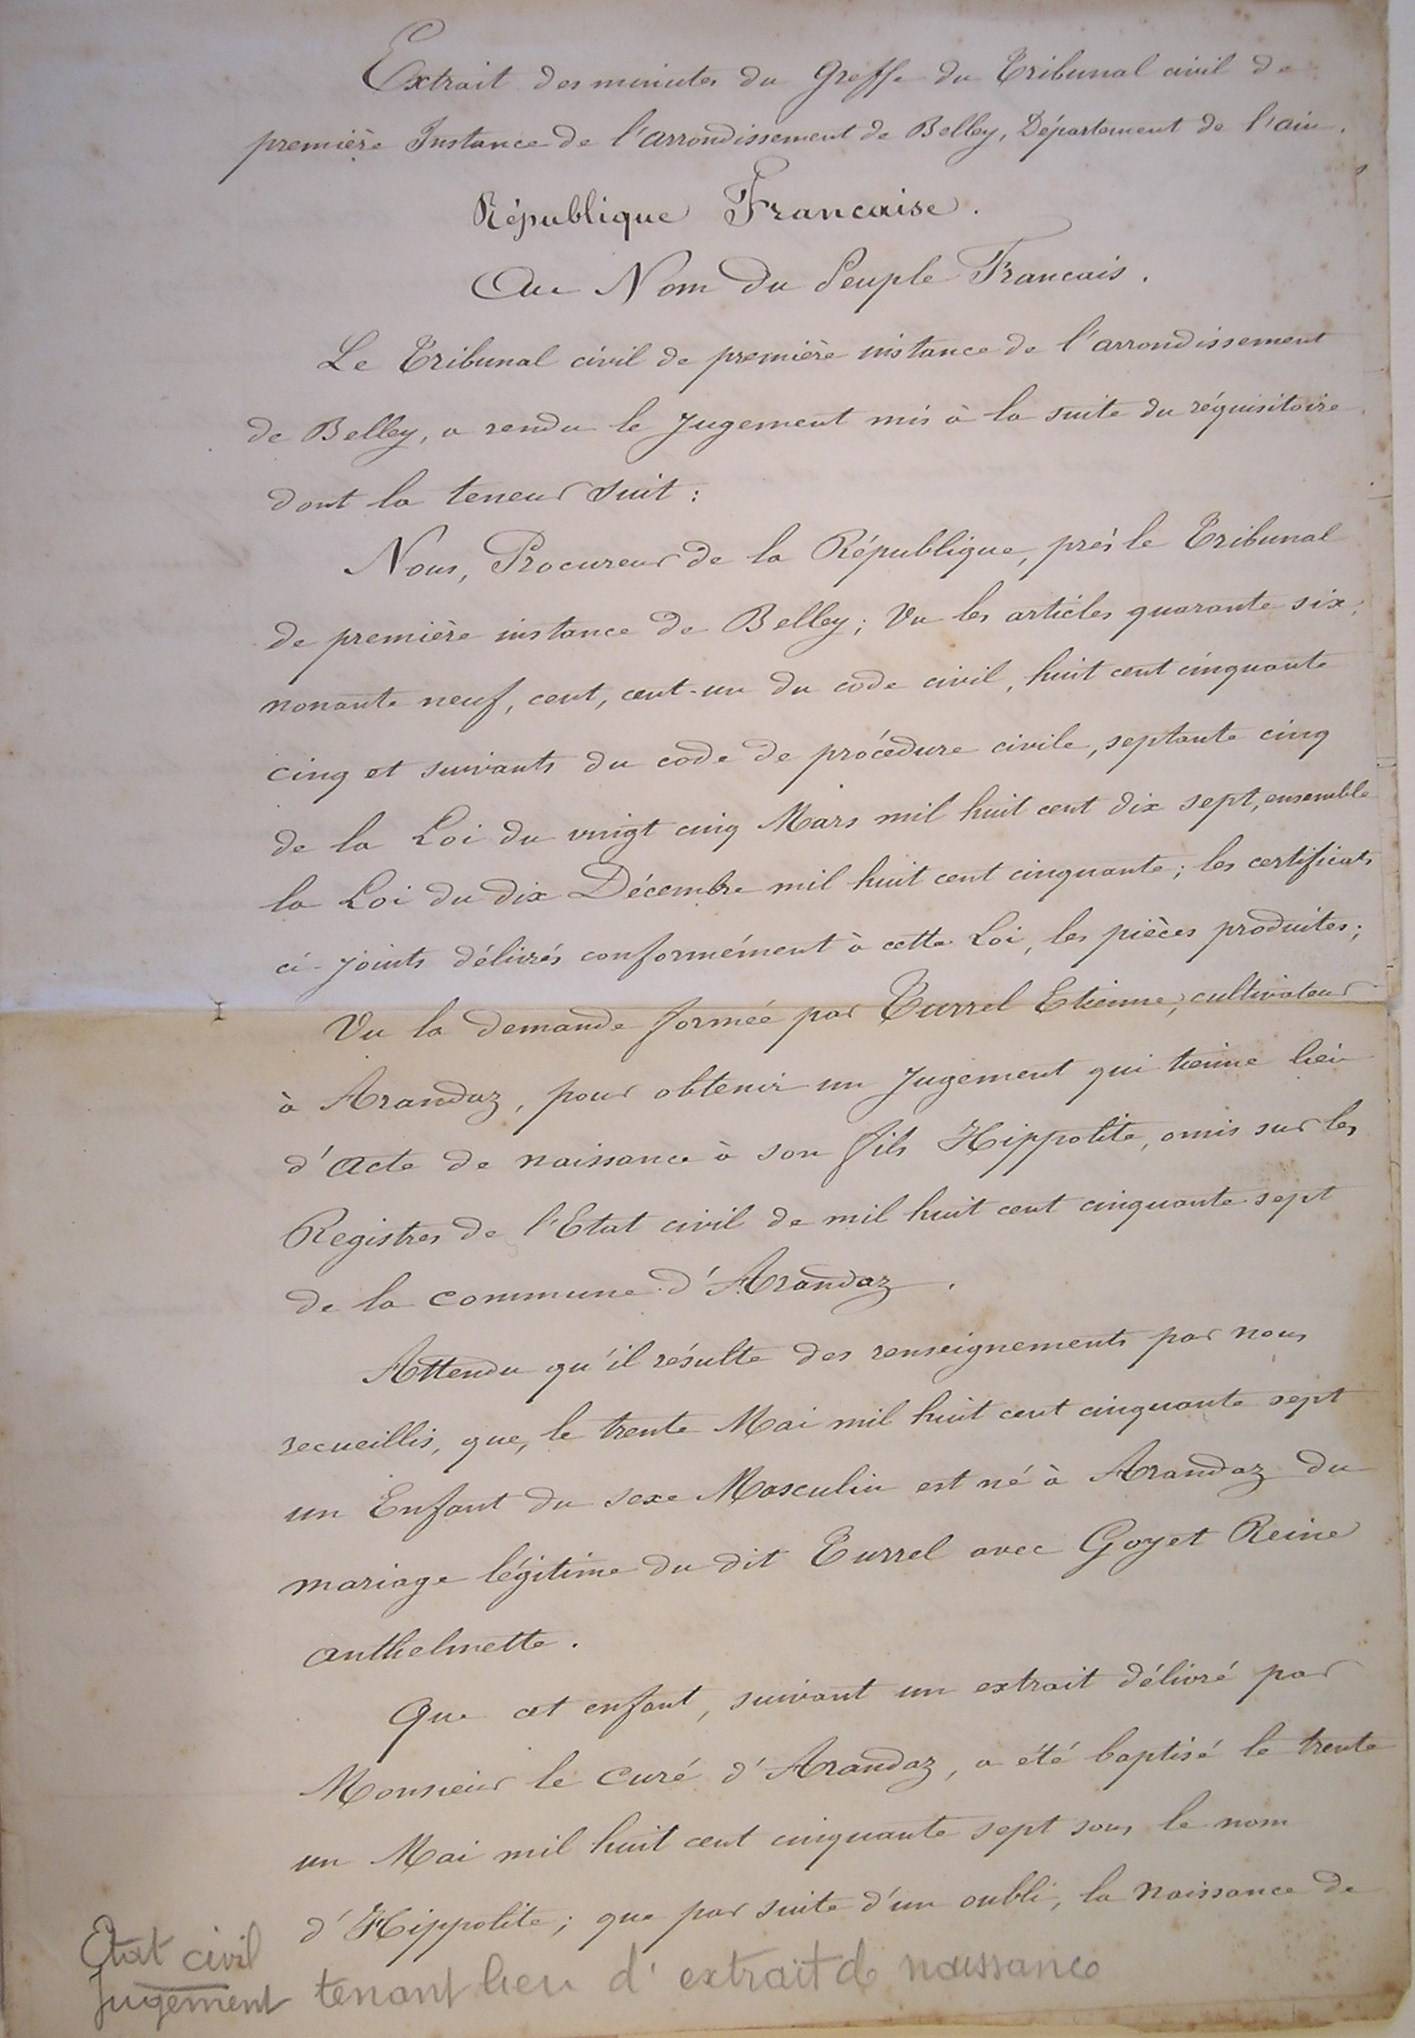 Extrait des minutes du Greffe du Tribunal civil de
première Instance de l'arrondissement de Belley, Département de l'ain.
République Francaise.
Au Nom du Peuple Francais.
Le Tribunal civil de première instance de l'arrondissement
de Belley, a rendu le Jugement mis à la suite du réquisitoire
dont la teneur suit :
Nous, Procureur de la République, près le Tribunal
de première instance de Belley ; Vu les articles quarante six,
nonante neuf, cent, cent-un du code civil, huit cent cinquante
cinq et suivants du code de procédure civile, septante cinq
de la Loi du vingt cinq Mars mil huit cent dix sept, ensemble
la Loi du dix Décembre mil huit cent cinquante ; les certificats
ci-joints délivrés conformément à cette Loi, les pièces produites ;
Vu la demande formée par Turrel Etienne, cultivateur
à Arandaz, pour obtenir un Jugement qui tienne lieu
d'acte de naissance à son fils Hippolite, omis sur les
Registres de l'Etat civil de mil huit cent cinquante sept
de la commune d'Arandaz.
Attendu qu'il résulte des renseignements par nous
recueillis, que, le trente Mai mil huit cent cinquante sept
un Enfant du sexe Masculin est né à Arandaz du
mariage légitime du dit Turrel avec Goyet Reine
anthelmette.
Que cet enfant, suivant un extrait délivré par
Monsieur le Curé d'Arandaz, a été baptisé le trente
un Mai mil huit cent cinquante sept sous le nom
d'Hippolite ; que par suite d'un oubli, la Naissance de
Etat civil
Jugement tenant lieu d'extrait de naissance